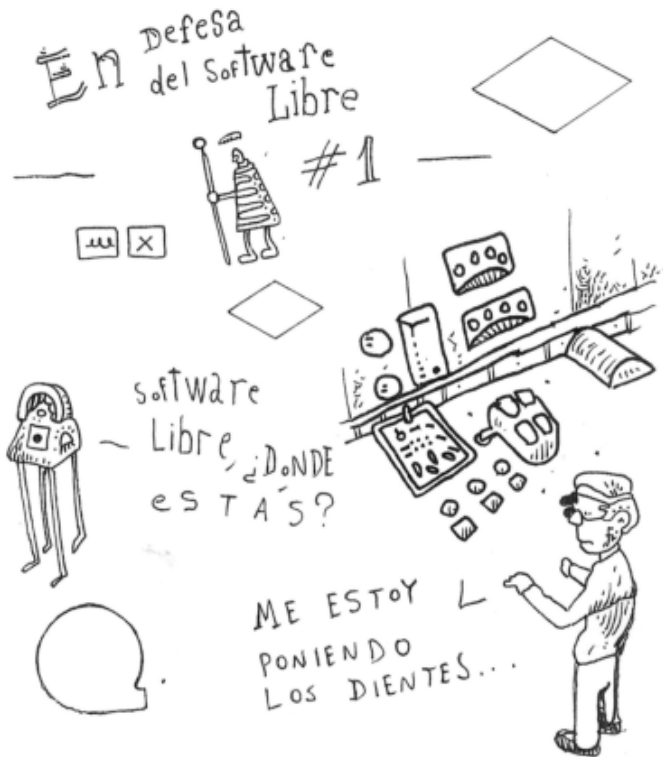 En Defesa
del Software
Libre
#1
x
software
Libre, ¿DONDE
esTAS?
ME ESTOY
PONIENDO
LOS DIENTES...